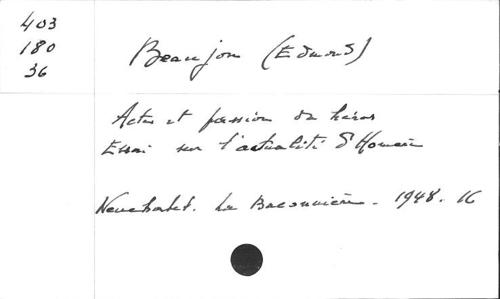 403
180
36
Beaujon (Edmond)
Acte et passion du héros
Essai sur l'actualité d'Homère
Neuchatel. La Baconnière. 1948. 16